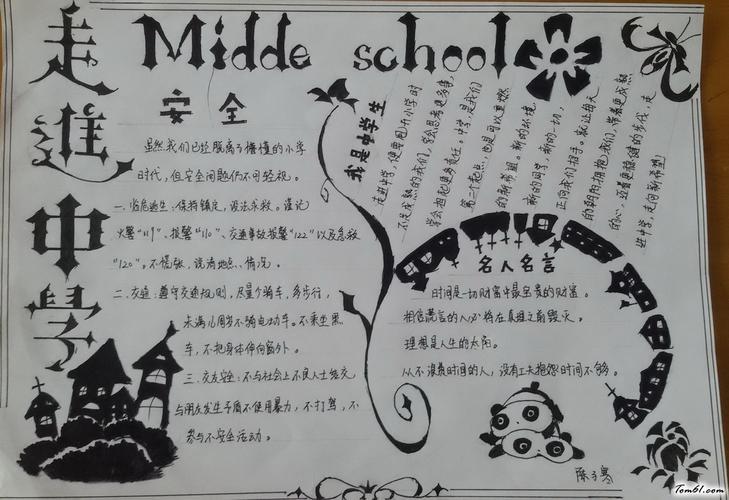 走進中學
Midde school
安全
虽然我们已经脱离了懵懂的小学
时代，但安全问题仍不可轻视。
一、临危逃生：保持镇定，设法求救。谨记
火警“119”、报警“110”、交通事故报警“122”以及急救
“120”。不慌张，说清地点、情况。
二、交通：遵守交通规则，尽量少骑车，多步行，
未满16周岁不骑电动车。不乘坐黑
车，不把身体伸向窗外。
三、交友安全：不与社会上不良人士结交
与朋友发生矛盾不使用暴力，不打骂，不
参与不安全活动。
我是中学生
走进中学，便要图新小学时
不成熟的我们，学会思考更多事，
学会担起更多责任。中学，是我们
第二个起点，也是可以更燃
的新希望。新的环境，
新的同学，新的一切，
正向我们招手。就让每天
的朝阳拥抱我们，带着更成熟
的心，迈着更稳健的步伐，走
进中学，走向新希望！
名人名言
时间是一切财富中最宝贵的财富。
相信谎言的人必将在真理之前毁灭。
理想是人生的太阳。
从不浪费时间的人，没有工夫抱怨时间不够。
Tom61.com